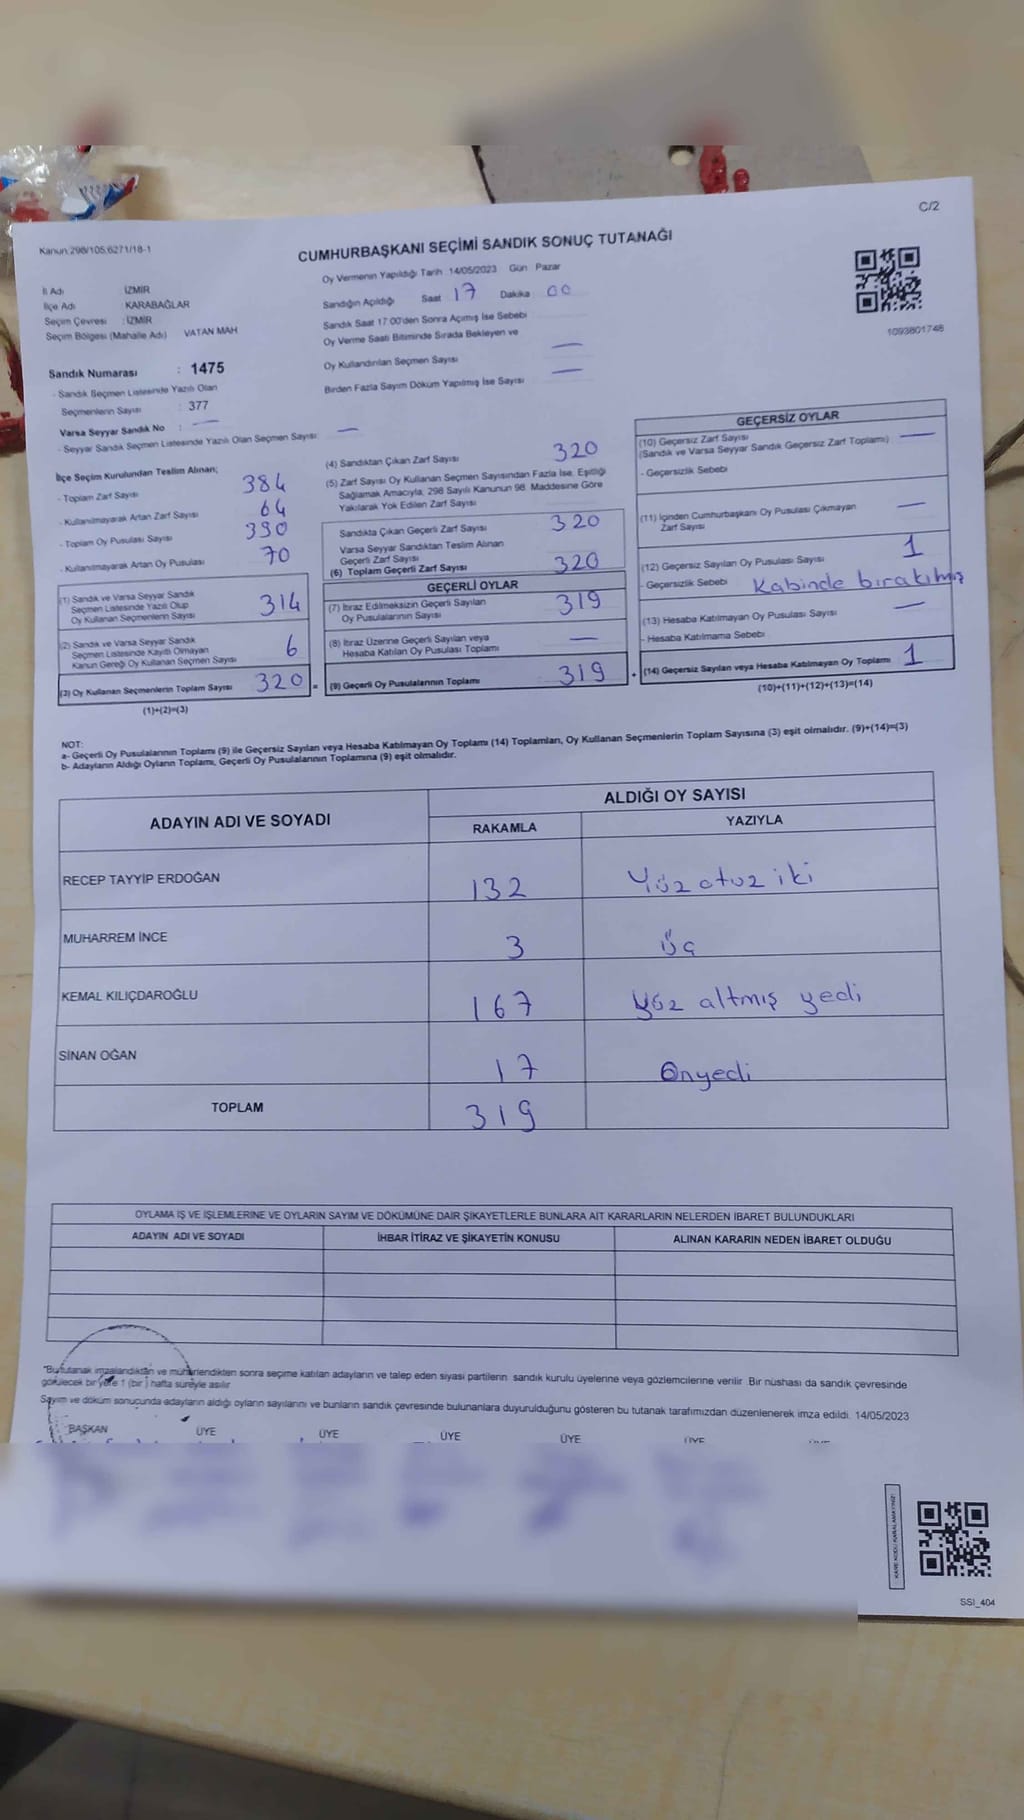 C/2
Kanun:298/105,6271/18-1
CUMHURBAŞKANI SEÇİMİ SANDIK SONUÇ TUTANAĞI
Oy Vermenin Yapıldığı Tarih 14/05/2023 Gün Pazar
İl Adı İZMİR
İlçe Adı : KARABAĞLAR
Seçim Çevresi : İZMİR
Seçim Bölgesi (Mahalle Adı) VATAN MAH
Sandığın Açıldığı Saat 17 Dakika 00
Sandık Saat 17:00'den Sonra Açılmış İse Sebebi
Oy Verme Saati Bitiminde Sırada Bekleyen ve
Oy Kullandırılan Seçmen Sayısı —
Birden Fazla Sayım Döküm Yapılmış İse Sayısı —
1093801748
Sandık Numarası : 1475
- Sandık Seçmen Listesinde Yazılı Olan
Seçmenlerin Sayısı : 377
Varsa Seyyar Sandık No : —
- Seyyar Sandık Seçmen Listesinde Yazılı Olan Seçmen Sayısı: —
İlçe Seçim Kurulundan Teslim Alınan;
- Toplam Zarf Sayısı 384
- Kullanılmayarak Artan Zarf Sayısı 64
- Toplam Oy Pusulası Sayısı 390
- Kullanılmayarak Artan Oy Pusulası 70
(1) Sandık ve Varsa Seyyar Sandık
Seçmen Listesinde Yazılı Olup
Oy Kullanan Seçmenlerin Sayısı 314
(2) Sandık ve Varsa Seyyar Sandık
Seçmen Listesinde Kayıtlı Olmayan
Kanun Gereği Oy Kullanan Seçmen Sayısı 6
(3) Oy Kullanan Seçmenlerin Toplam Sayısı 320 =
(1)+(2)=(3)
(4) Sandıktan Çıkan Zarf Sayısı 320
(5) Zarf Sayısı Oy Kullanan Seçmen Sayısından Fazla İse, Eşitliği
Sağlamak Amacıyla, 298 Sayılı Kanunun 98. Maddesine Göre
Yakılarak Yok Edilen Zarf Sayısı
Sandıkta Çıkan Geçerli Zarf Sayısı 320
Varsa Seyyar Sandıktan Teslim Alınan
Geçerli Zarf Sayısı
(6) Toplam Geçerli Zarf Sayısı 320
GEÇERLİ OYLAR
(7) İtiraz Edilmeksizin Geçerli Sayılan
Oy Pusulalarının Sayısı 319
(8) İtiraz Üzerine Geçerli Sayılan veya
Hesaba Katılan Oy Pusulası Toplamı —
(9) Geçerli Oy Pusulalarının Toplamı 319 +
GEÇERSİZ OYLAR
(10) Geçersiz Zarf Sayısı
(Sandık ve Varsa Seyyar Sandık Geçersiz Zarf Toplamı) : —
- Geçersizlik Sebebi
(11) İçinden Cumhurbaşkanı Oy Pusulası Çıkmayan
Zarf Sayısı —
(12) Geçersiz Sayılan Oy Pusulası Sayısı 1
- Geçersizlik Sebebi Kabinde bırakılmış
(13) Hesaba Katılmayan Oy Pusulası Sayısı —
- Hesaba Katılmama Sebebi
(14) Geçersiz Sayılan veya Hesaba Katılmayan Oy Toplamı 1
(10)+(11)+(12)+(13)=(14)
NOT:
a- Geçerli Oy Pusulalarının Toplamı (9) ile Geçersiz Sayılan veya Hesaba Katılmayan Oy Toplamı (14) Toplamları, Oy Kullanan Seçmenlerin Toplam Sayısına (3) eşit olmalıdır. (9)+(14)=(3)
b- Adayların Aldığı Oyların Toplamı, Geçerli Oy Pusulalarının Toplamına (9) eşit olmalıdır.
ADAYIN ADI VE SOYADI
ALDIĞI OY SAYISI
RAKAMLA YAZIYLA
RECEP TAYYİP ERDOĞAN 132 Yüz otuz iki
MUHARREM İNCE 3 Üç
KEMAL KILIÇDAROĞLU 167 yüz altmış yedi
SİNAN OĞAN 17 Onyedi
TOPLAM 319
OYLAMA İŞ VE İŞLEMLERİNE VE OYLARIN SAYIM VE DÖKÜMÜNE DAİR ŞİKAYETLERLE BUNLARA AİT KARARLARIN NELERDEN İBARET BULUNDUKLARI
ADAYIN ADI VE SOYADI İHBAR İTİRAZ VE ŞİKAYETİN KONUSU ALINAN KARARIN NEDEN İBARET OLDUĞU
*Bu tutanak imzalandıktan ve mühürlendikten sonra seçime katılan adayların ve talep eden siyasi partilerin sandık kurulu üyelerine veya gözlemcilerine verilir. Bir nüshası da sandık çevresinde
görülecek bir yere 1 (bir) hafta süreyle asılır.
Sayım ve döküm sonucunda adayların aldığı oyların sayılarını ve bunların sandık çevresinde bulunanlara duyurulduğunu gösteren bu tutanak tarafımızdan düzenlenerek imza edildi. 14/05/2023
BAŞKAN ÜYE ÜYE ÜYE ÜYE ÜYE
KARE KODU KARALAMAYINIZ!
SSI_404